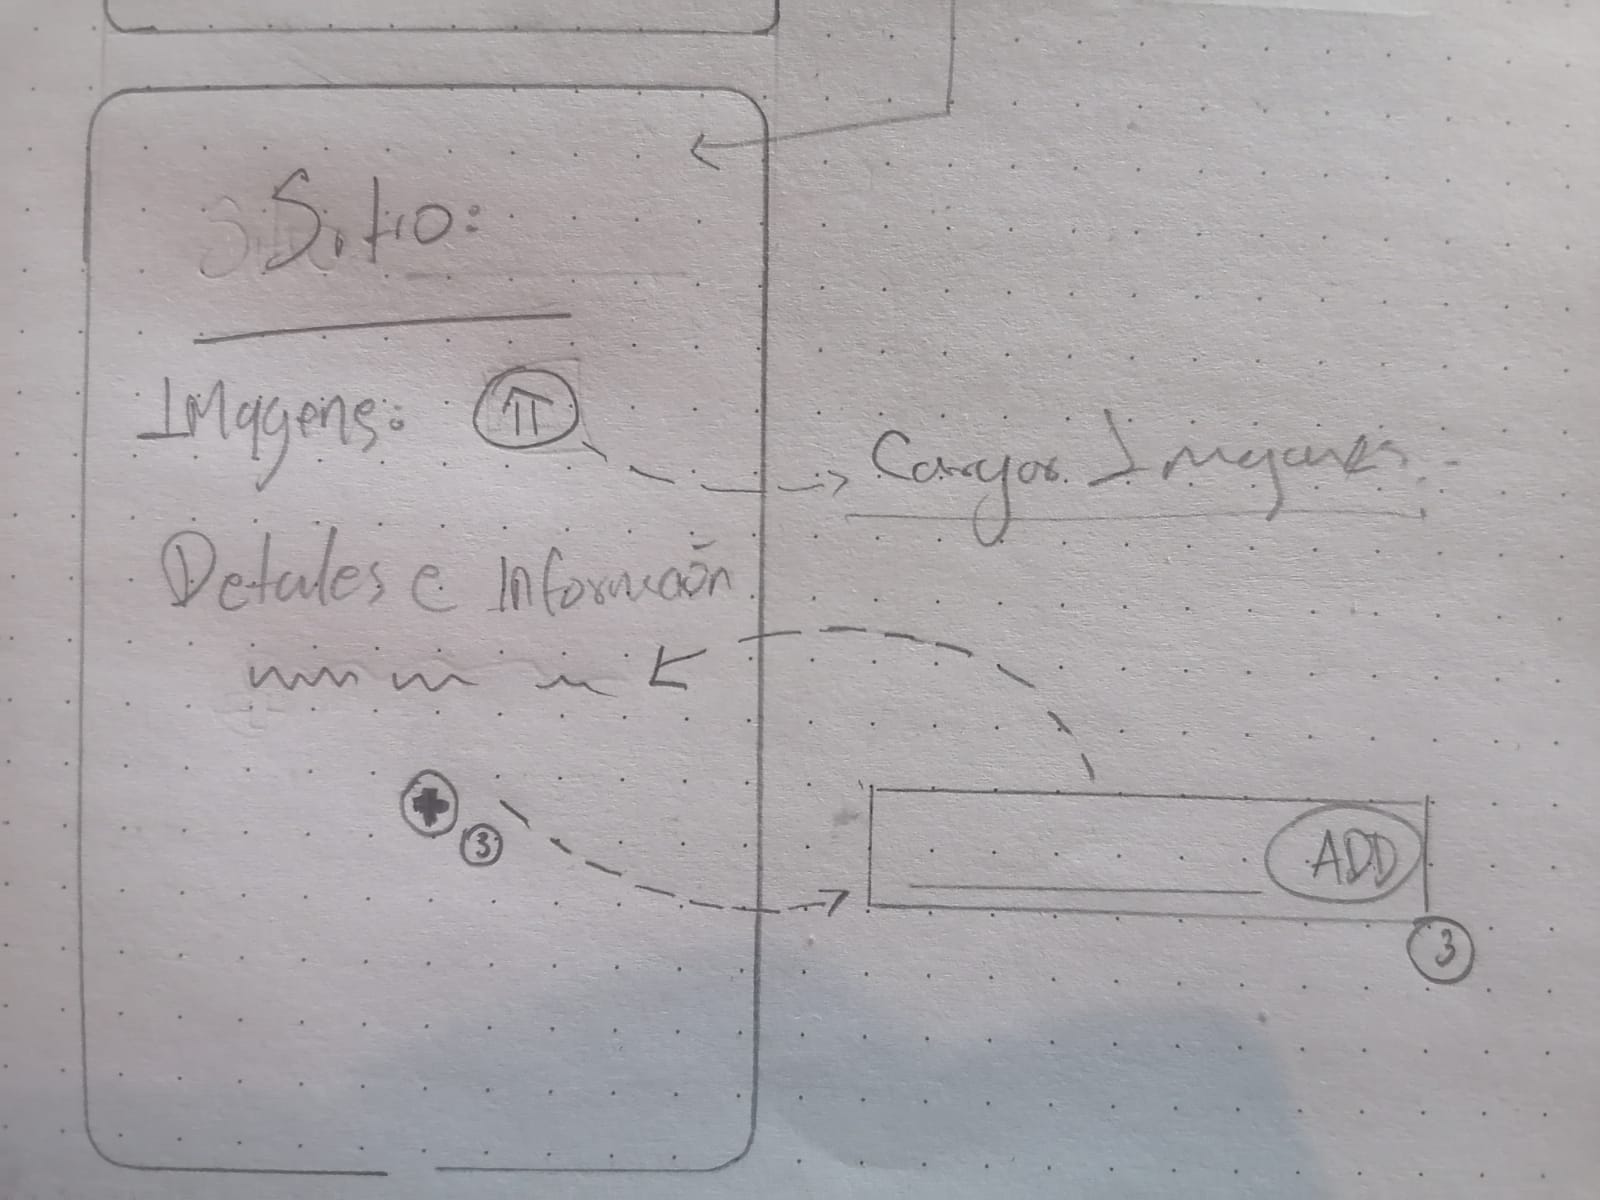 Sitio:
Imagens:
Cargar Imagenes.
Detalles e Información
3
ADD
3